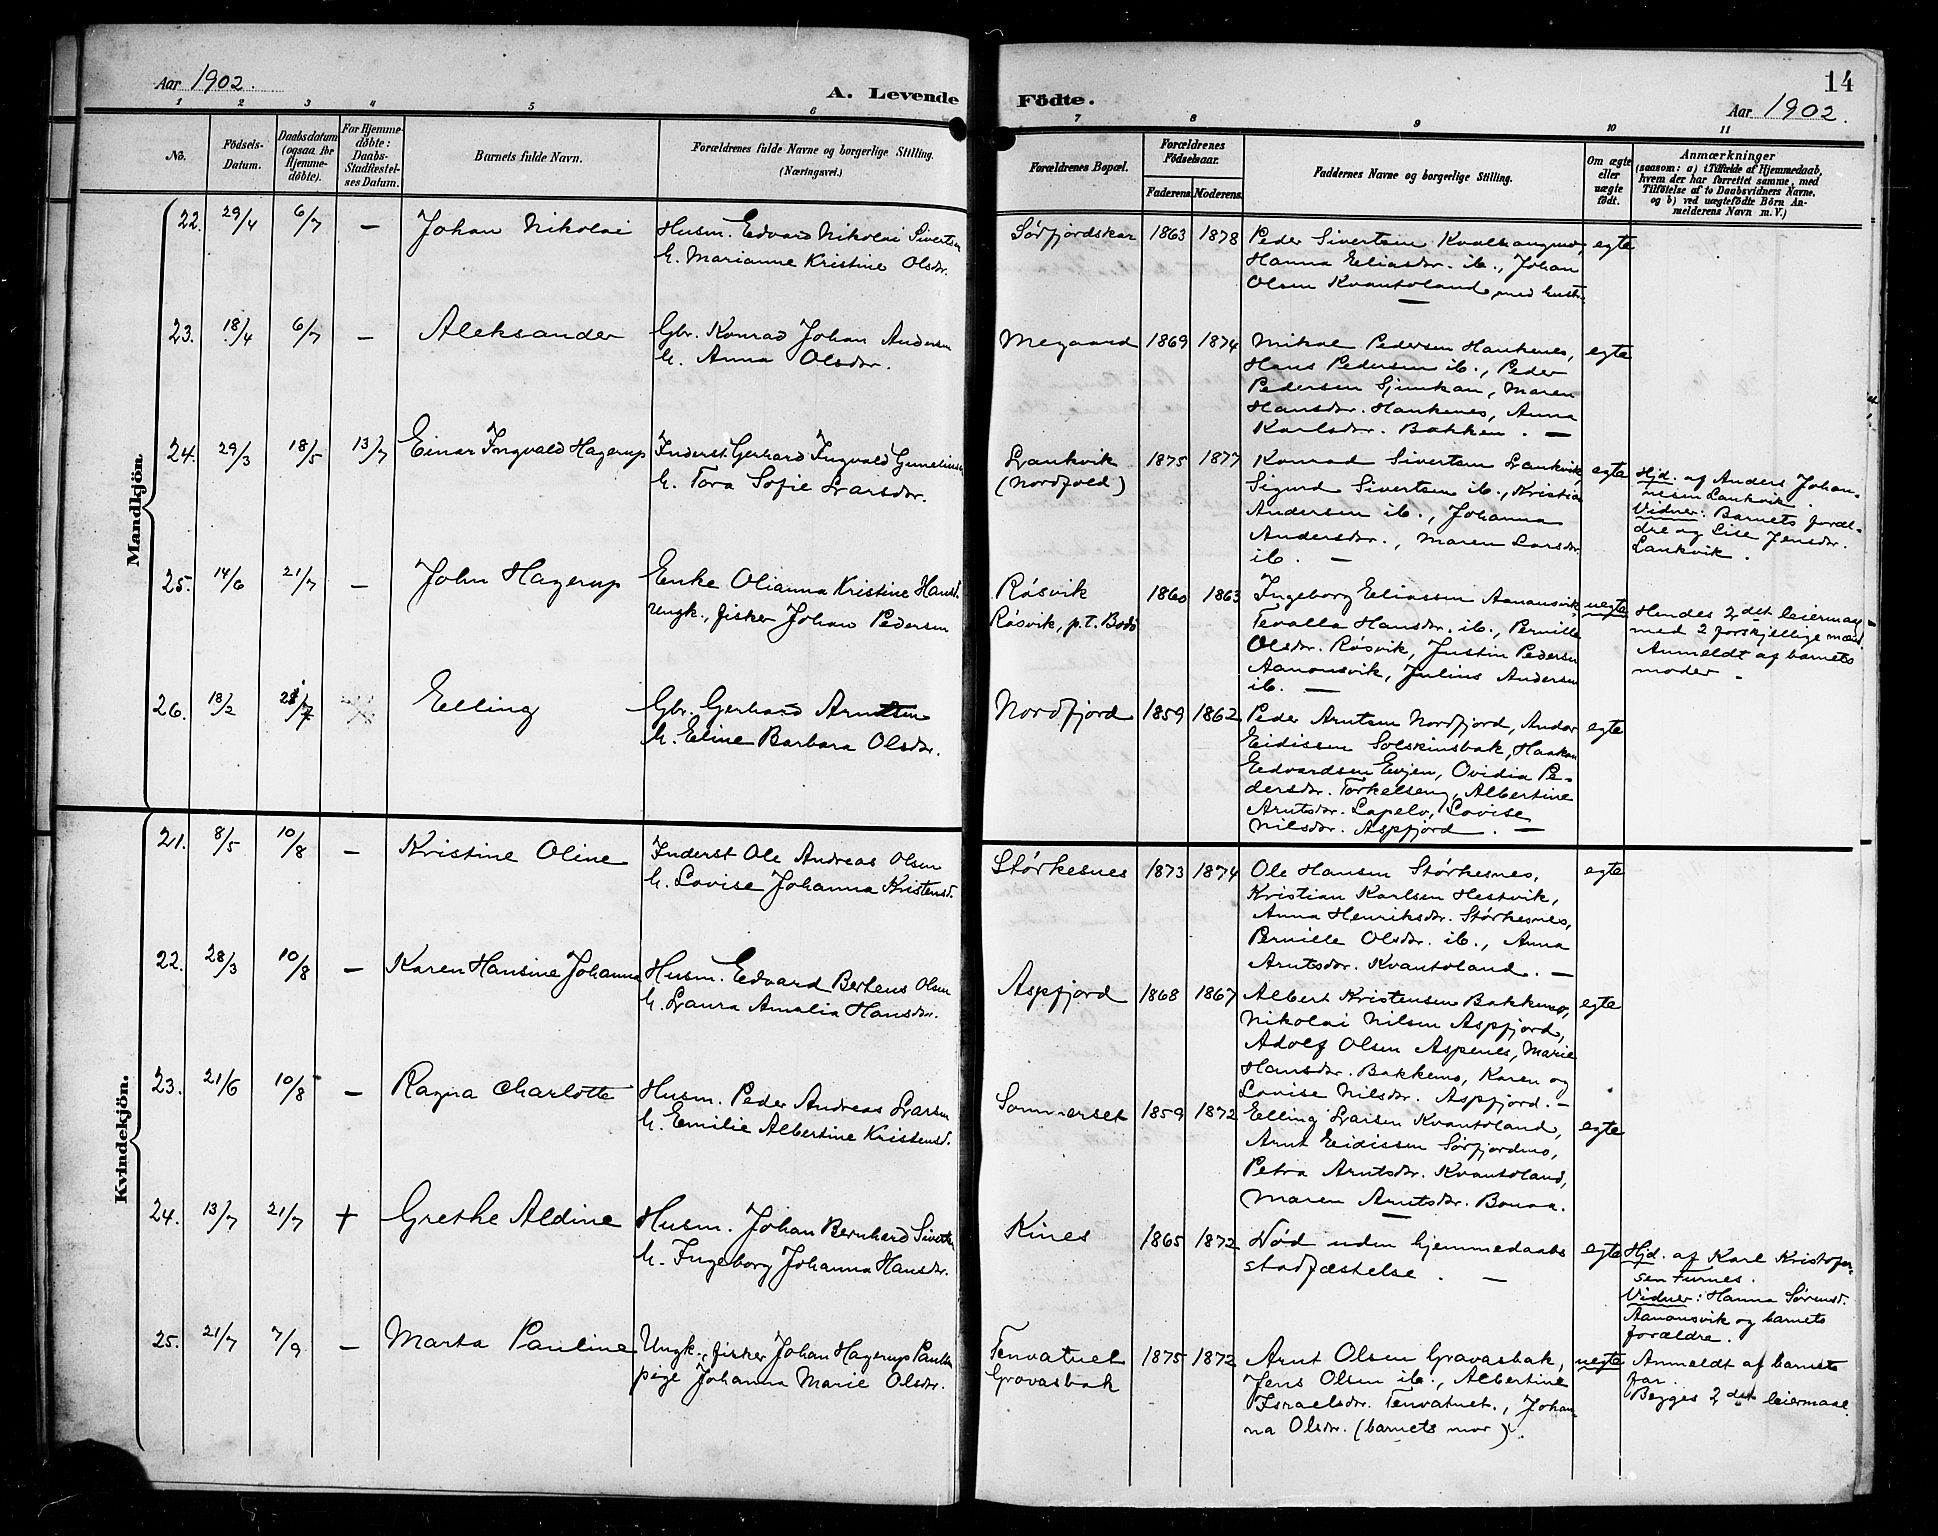 Aar 1902.
A. Levende
Födte.
14
Aar 1902.
1 2 3 4 5 6 7 8 9 10 11
No.
Födsels-
Datum.
Daabsdatum
(ogsaa for
Hjemme-
döbte).
For Hjemme-
döbte:
Daabs-
Stadfæstel-
ses Datum.
Barnets fulde Navn.
Forældrenes fulde Navne og borgerlige Stilling.
(Næringsvei.)
Forældrenes Bopæl.
Forældrenes
Födselsaar.
Faderens. Moderens.
Faddernes Navne og borgerlige Stilling.
Om ægte
eller
uægte
födt.
Anmærkninger
(saasom: a) i Tilfælde af Hjemmedaab,
hvem der har forrettet samme, med
Tilföielse af to Daabsvidners Navne,
og b) ved uægtefödte Börn An-
melderens Navn m. V.)
Mandkjön
22. 29/4 6/7 — Johan Nikolai
Husm. Edvard Nikolai Sivertsen
h. Marianne Kristine Olsdr.
Sørfjordskar 1863 1878
Peder Sivertsen
Hanna Eliasdr. ib., Johan
Olsen Kvantoland med hustr.
—
egte
23. 18/4 6/7 — Aleksander
Gbr. Konrad Johan Andersen
h. Anna Olsdr.
Megaard 1869 1874
Mikal Pedersen Hankenes,
Hans Pedersen ib., Peder
Pedersen Sjunkan, Maren
Hansdr. Hankenes, Anna
Karlsdr. Bakken. —
egte
24. 29/3 18/5 13/7 Einar Ingvald Hagerup
Inderst Gerhard Ingvald
h. Tora Sofie Larsdr.
Lankvik
(Nordfold)
1875 1877
Konrad Sivertsen Lankvik,
Sigurd Sivertsen ib., Kristian
Andersen ib., Johanna
Andersdr., Maren Larsdr.
ib. —
egte
Hjd. af Anders Johan-
nesen Lankvik.
Vidner: Barnets foræl-
dre og Lise Jensdr.
Lankvik.
25. 14/6 21/7 — John Hagerup
Enke Olianna Kristine Hansd.
Ungk., fisker Johan Pedersen
Røsvik
Røsvik, p.t. Bodø
1860 1863
Ingeborg Eliassen Aanonsvik,
Tevalla Hansdr. ib., Pernille
Olsdr. Røsvik, Justin Pedersen
Aanonsvik, Julius Andersen
ib. —
uegte
Hendes 2det leiermaal
med 2 forskjellige mænd.
Anmeldt af barnets
moder.
26. 18/2 Elling
Gbr. Gerhard Arntsen
h. Eline Barbara Olsdr.
Nordfjord 1859 1862
Peder Arntsen Nordfjord, Andor
Eidissen Solskinsbak, Haakon
Edvardsen Evjen, Ovidia Pe-
dersdr. Torkelseng, Albertine
Arntsdr. Lapelv, Lovise
Nilsdr. Aspfjord. —
egte
Kvindekjön.
21. 8/5 10/8 — Kristine Oline
Inderst Ole Andreas Olsen
h. Lovise Johanna Kristensd.
Størkesnes 1873 1874
Ole Hansen Størkesnes,
Kristian Karlsen Hestvik,
Anna Henriksdr. Størkesnes,
Pernille Olsdr. ib., Anna
Arntsdr. Kvantoland. —
egte
22. 28/3 10/8 — Karen Hansine Johanna
Husm. Edvard Bertens Olsen
h. Laura Amalia Hansdr.
Aspfjord 1868 1867
Albert Kristensen Bakkemo,
Nikolai Nilsen Aspfjord,
Adolf Olsen Aspenes, Marie
Hansdr. Bakkemo, Karen og
Lovise Nilsdr. Aspfjord. —
egte
23. 21/6 10/8 — Ragna Charlotte
Husm. Peder Andreas Larsen
h. Emilie Albertine Kristensd.
Sommerset 1859 1872
Elling Larsen Kvantoland,
Arnt Eidissen Sørfjordmo,
Petra Arntsdr. Kvantoland,
Maren Arntsdr. Bonaa.
—
egte
24. 13/7 21/7 + Grethe Aldine
Husm. Johan Bernhard Sivertsen
h. Ingeborg Johanna Hansdr.
Kines 1865 1872
Død uden hjemmedaabs
stadfæstelse. —
egte
Hjd. af Karl Kristofer-
sen Furnes.
Vidner: Hanna Sørensd.
Aanonsvik og barnets
forældre.
25. 21/7 7/9 — Marta Pauline
Ungk., fisker Johan Hagerup Paulsen
pige Johanna Marie Olsdr.
Tenvatnet
Grovasbak
1875 1872
Arnt Olsen Grovasbak,
Jens Olsen ib., Albertine
Israelsdr. Tenvatnet., Johan-
na Olsdr. (barnets mor).
uegte
Anmeldt af barnets
far.
Begges 2det leiermaal.